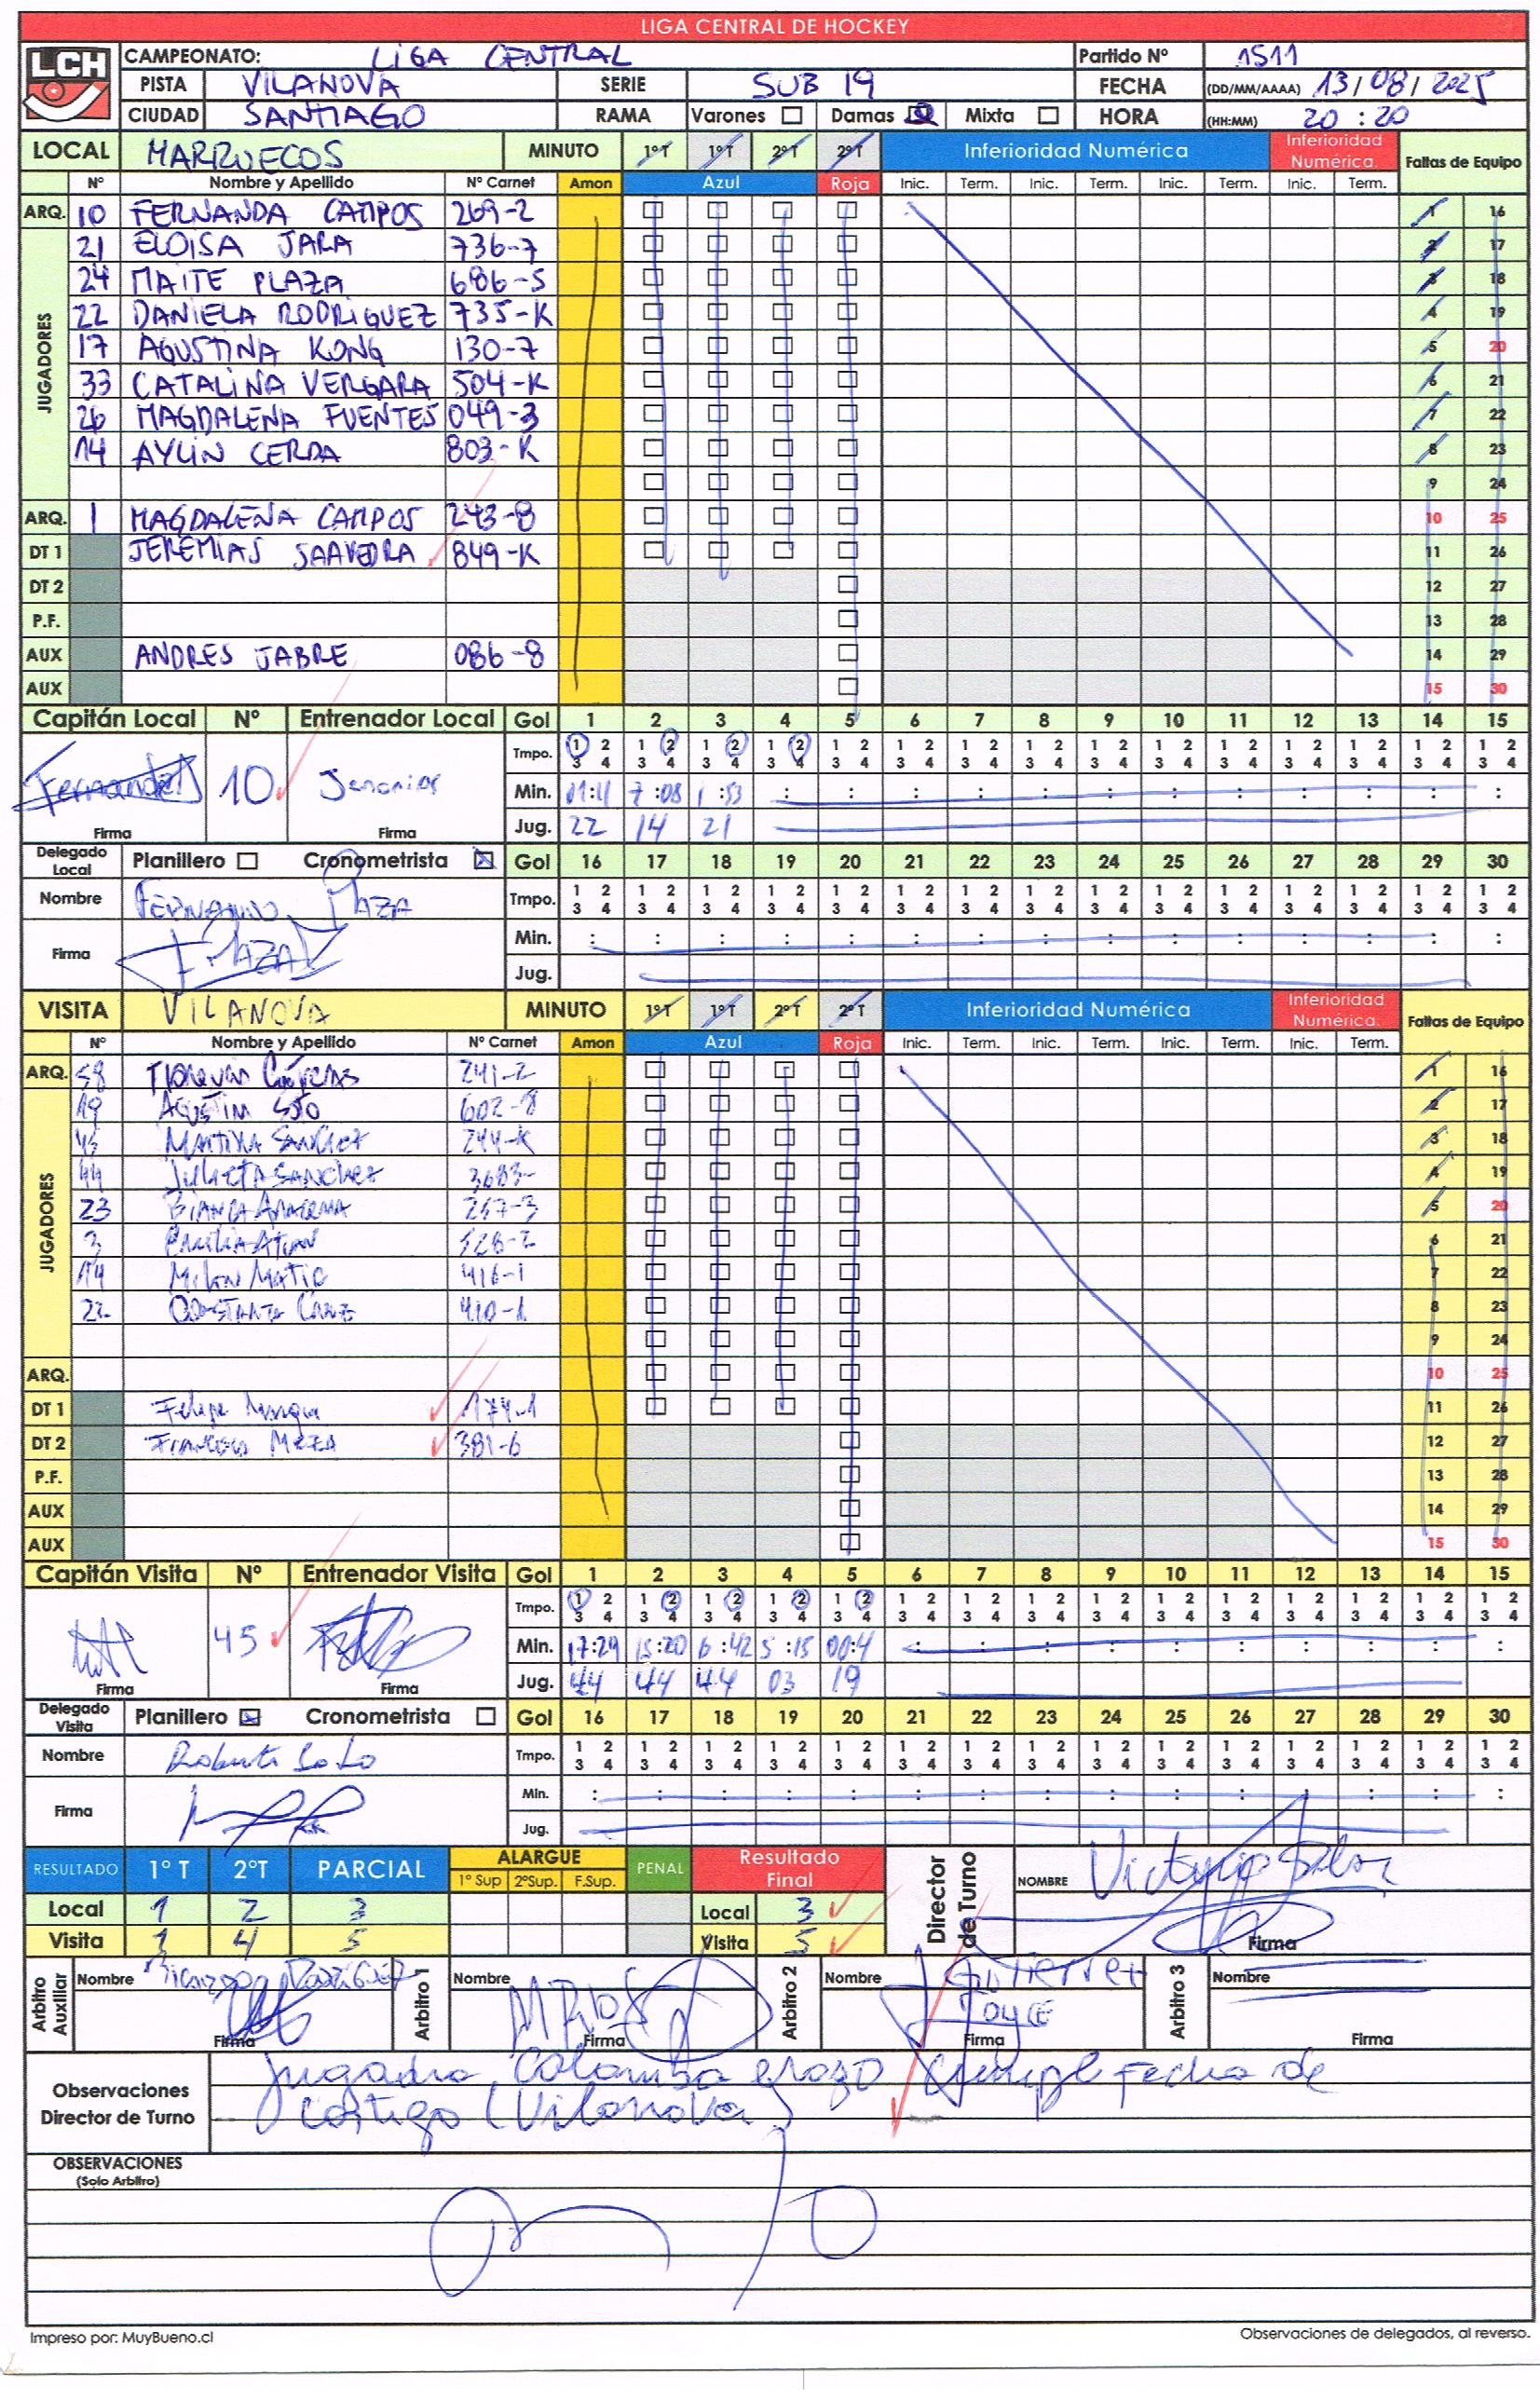 LIGA CENTRAL DE HOCKEY
LCH
CAMPEONATO: LIGA CENTRAL Partido Nº 1511
PISTA VILANOVA SERIE SUB 19 FECHA (DD/MM/AAAA) 13/08/2025
CIUDAD SANTIAGO RAMA Varones Damas Mixta HORA (HH:MM) 20:20
LOCAL MARRUECOS MINUTO 1ºT 1ºT 2ºT 2ºT Inferioridad Numérica Inferioridad Numérica. Faltas de Equipo
Nº Nombre y Apellido Nº Carnet Amon Azul Roja Inic. Term. Inic. Term. Inic. Term. Inic. Term.
ARQ. 10 FERNANDA CAMPOS 269-2 1 16
JUGADORES
21 ELOISA JARA 736-7 2 17
24 MAITE PLAZA 686-5 3 18
22 DANIELA RODRIGUEZ 735-K 4 19
17 AGUSTINA KONG 130-7 5 20
33 CATALINA VERGARA 504-K 6 21
26 MAGDALENA FUENTES 049-3 7 22
14 AYLIN CERDA 803-K 8 23
9 24
ARQ. 1 MAGDALENA CAMPOS 243-8 10 25
DT 1 JEREMIAS SAAVEDRA 849-K 11 26
DT 2 12 27
P.F. 13 28
AUX ANDRES JABRE 086-8 14 29
AUX 15 30
Capitán Local Nº Entrenador Local Gol 1 2 3 4 5 6 7 8 9 10 11 12 13 14 15
Tmpo. 1 2 1 2 1 2 1 2 1 2 1 2 1 2 1 2 1 2 1 2 1 2 1 2 1 2 1 2 1 2
3 4 3 4 3 4 3 4 3 4 3 4 3 4 3 4 3 4 3 4 3 4 3 4 3 4 3 4 3 4
Fernanda 10 Min. 7:08 1:53
Firma Firma Jug. 22 14 21
Delegado Local Planillero Cronometrista Gol 16 17 18 19 20 21 22 23 24 25 26 27 28 29 30
Nombre FERNANDO PLAZA Tmpo. 1 2 1 2 1 2 1 2 1 2 1 2 1 2 1 2 1 2 1 2 1 2 1 2 1 2 1 2 1 2
3 4 3 4 3 4 3 4 3 4 3 4 3 4 3 4 3 4 3 4 3 4 3 4 3 4 3 4 3 4
Firma Min.
Jug.
VISITA VILANOVA MINUTO 1ºT 1ºT 2ºT 2ºT Inferioridad Numérica Inferioridad Numérica. Faltas de Equipo
Nº Nombre y Apellido Nº Carnet Amon Azul Roja Inic. Term. Inic. Term. Inic. Term. Inic. Term.
ARQ. 58 241-2 1 16
JUGADORES
19 602-8 2 17
MARTINA SANCHEZ 244-K 3 18
44 JULIETA SANCHEZ 3683- 4 19
23 BIANCA 257-3 5 20
3 6 21
14 Milan Matic 416-1 7 22
22 410-1 8 23
9 24
ARQ. 10 25
DT 1 Felipe 174-1 11 26
DT 2 MEZA 381-6 12 27
P.F. 13 28
AUX 14 29
AUX 15 30
Capitán Visita Nº Entrenador Visita Gol 1 2 3 4 5 6 7 8 9 10 11 12 13 14 15
Tmpo. 1 2 1 2 1 2 1 2 1 2 1 2 1 2 1 2 1 2 1 2 1 2 1 2 1 2 1 2 1 2
3 4 3 4 3 4 3 4 3 4 3 4 3 4 3 4 3 4 3 4 3 4 3 4 3 4 3 4 3 4
45 Min. 17:29 15:20 6:42 5:15 00:4
Firma Firma Jug. 44 44 44 03 19
Delegado Visita Planillero Cronometrista Gol 16 17 18 19 20 21 22 23 24 25 26 27 28 29 30
Nombre Roberto Soto Tmpo. 1 2 1 2 1 2 1 2 1 2 1 2 1 2 1 2 1 2 1 2 1 2 1 2 1 2 1 2 1 2
3 4 3 4 3 4 3 4 3 4 3 4 3 4 3 4 3 4 3 4 3 4 3 4 3 4 3 4 3 4
Firma Min.
Jug.
RESULTADO 1º T 2ºT PARCIAL ALARGUE PENAL Resultado Final Director de Turno NOMBRE
1º Sup 2ºSup. F.Sup.
Local 1 2 3 Local 3
Visita 1 4 5 Visita 5 Firma
Arbitro Auxiliar Nombre Arbitro 1 Nombre Arbitro 2 Nombre GUTIERREZ JOYCE Arbitro 3 Nombre
Firma Firma Firma Firma
Observaciones Director de Turno Jugadora Colomba erazo cumple fecha de
Castigo (Vilanova)
OBSERVACIONES
(Solo Arbitro)
Impreso por: MuyBueno.cl Observaciones de delegados, al reverso.